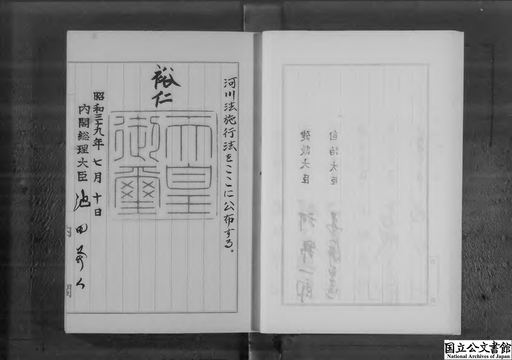 河川法施行法をここに公布する。
裕仁
天皇御璽
昭和三十九年七月十日
内閣総理大臣 池田勇人
自治大臣
建設大臣 河野一郎
国立公文書館
National Archives of Japan